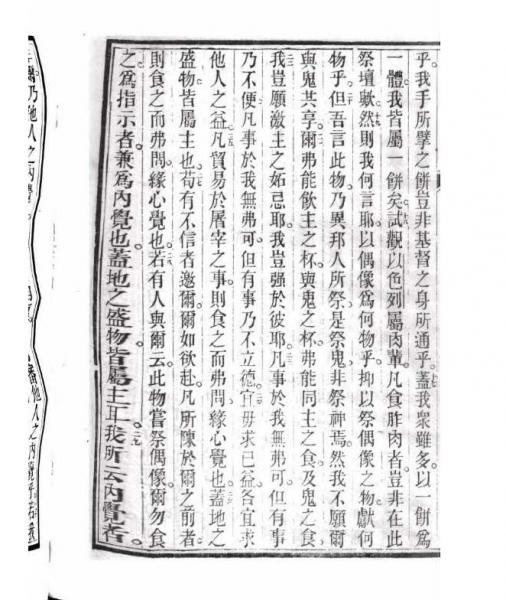 乎。我手所擘之餅豈非基督之身所通乎。蓋我衆雖多以一餅爲
一體我皆屬一餅矣。試觀以色列屬肉輩。凡食胙肉者豈非在此
祭壇歟。然則我何言耶。以偶像爲何物乎。抑以祭偶像之物獻何
物乎。但吾言此物乃異邦人所祭是祭鬼非祭神焉。然我不願爾
與鬼共享。爾弗能飲主之杯與鬼之杯。弗能同主之食及鬼之食
我豈願激主之妬忌耶。我豈强於彼耶。凡事於我無弗可。但有事
乃不便。凡事於我無弗可。但有事乃不立德。宜毋求已益。各宜求
他人之益。凡貿易於屠宰之事。則食之而弗問。緣心覺也。蓋地之
盛物皆屬主也。苟有不信者邀爾。爾如欲赴。凡所陳於爾之前者。
則食之而弗問。緣心覺也。若有人與爾云此物嘗祭偶像。爾勿食
之。爲指示者。兼爲內覺也。蓋地之盛物皆屬主耳。我所云內覺者。
爾。乃他人之內覺。
他人之內覺乎。若我